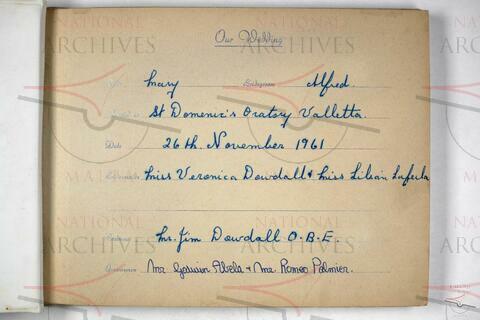 Our Wedding
Mary Bridegroom Alfred.
St Domenic's Oratory Valletta.
Date 26th. November 1961
Miss Veronica Dowdall & Miss Lilian
Mr. Jim Dowdall O.B.E.
Mr Gowin Abela & Mr. Romeo Palmier.
NATIONAL
ARCHIVES